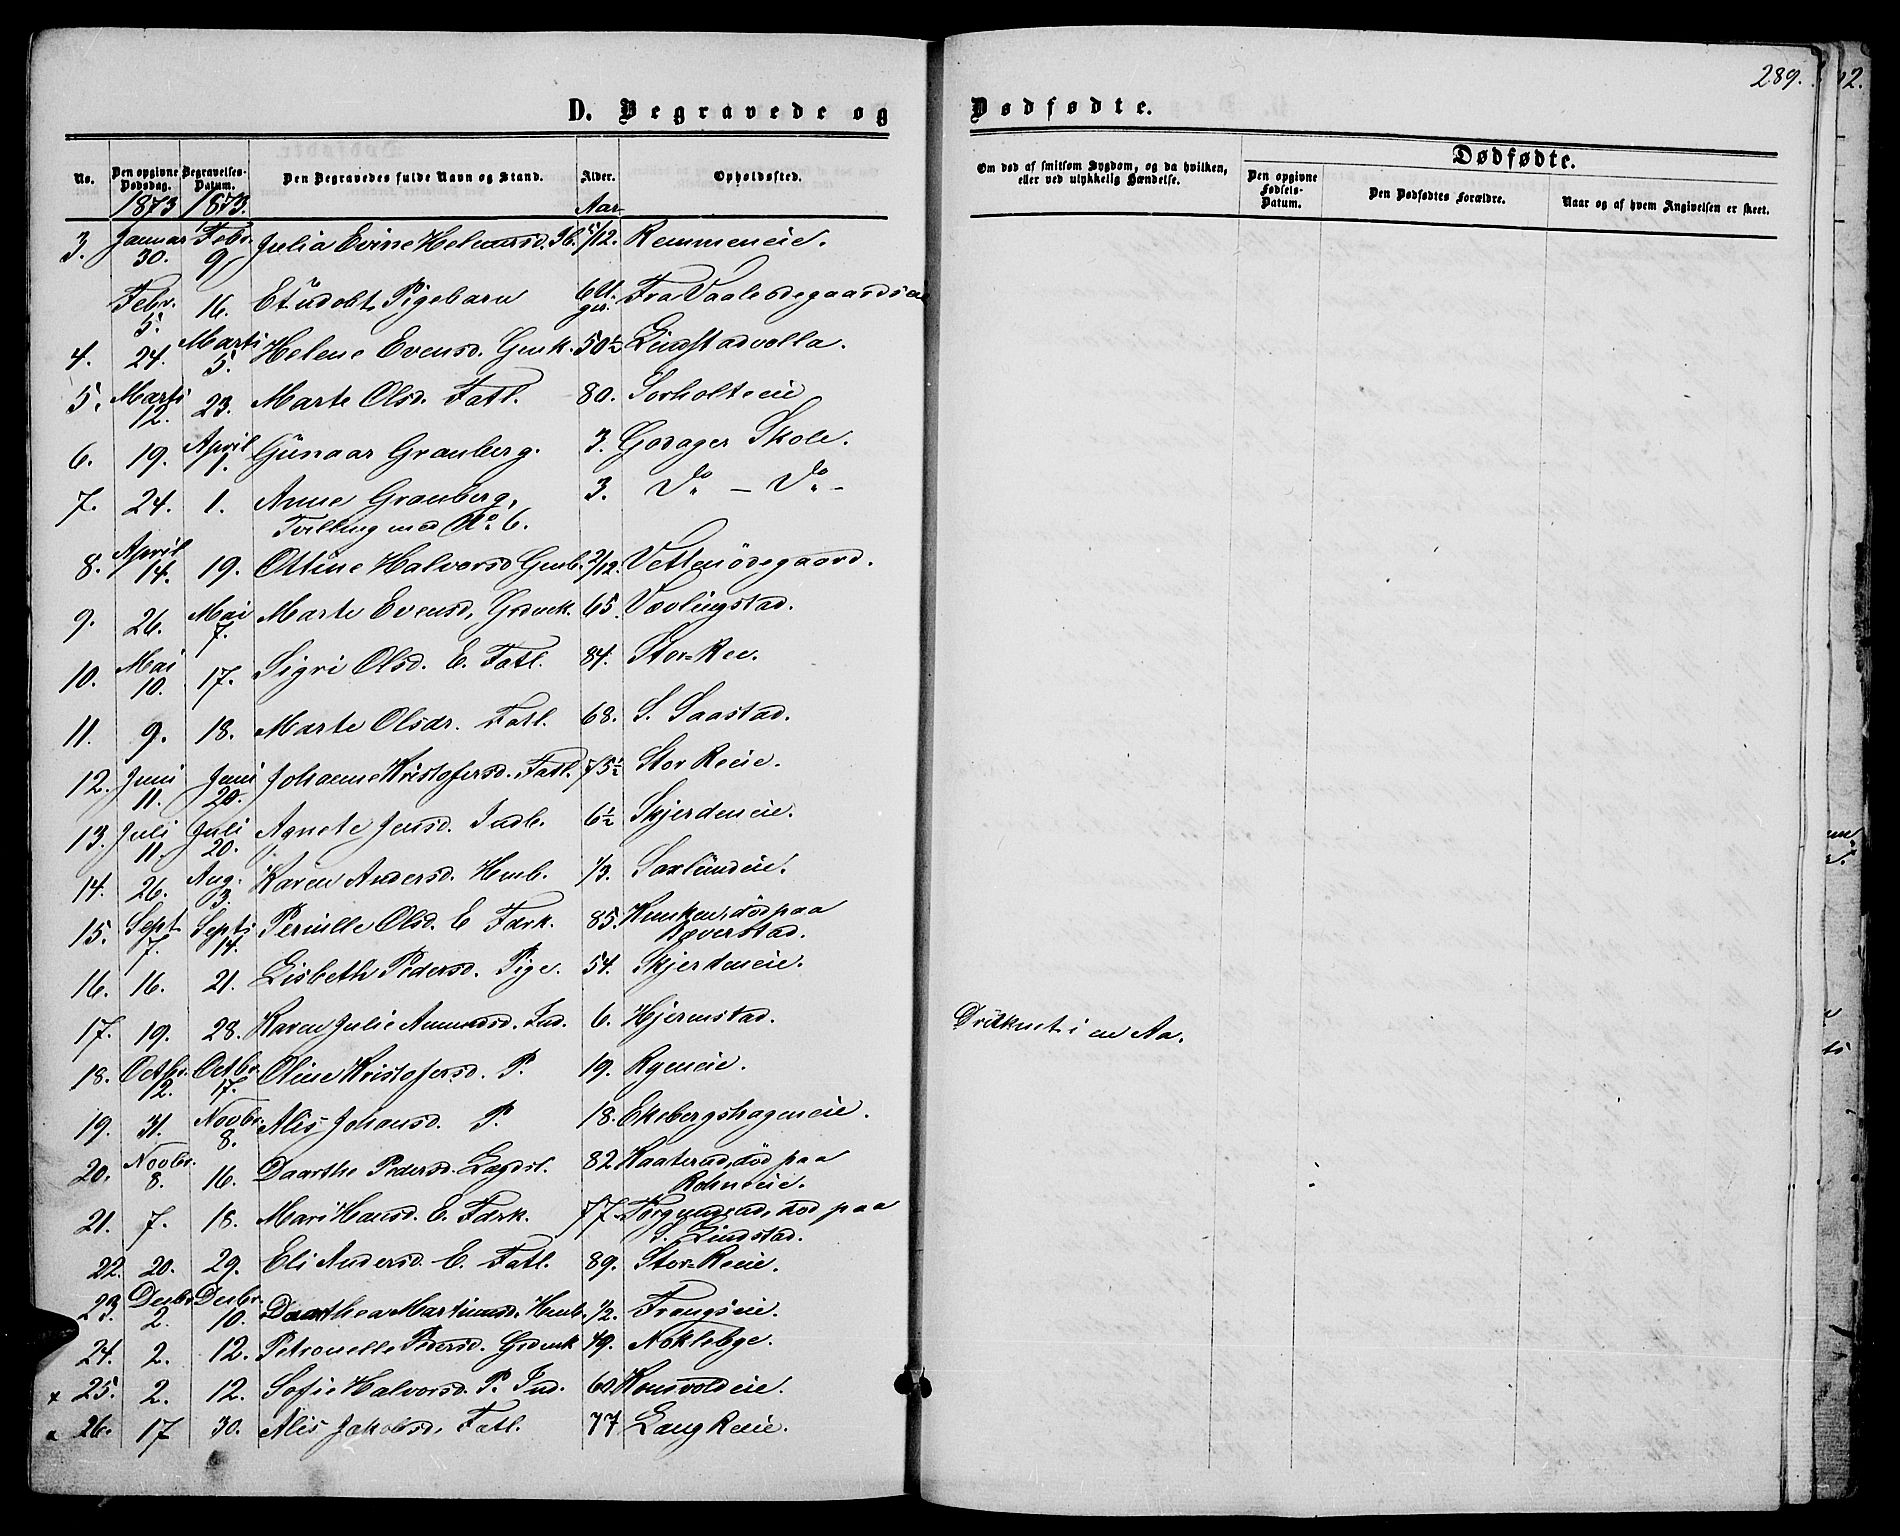 289.
D. Begravede og Dødfødte.
No. Den opgivne Dødsdag. Begravelses-Datum. Den Begravedes fulde Navn og Stand. Alder. Opholdssted.
Om død af smitsom Sygdom, og da hvilken, eller ved ulykkelig Hændelse.
Dødfødte.
Den opgivne Fødsels-Datum. Den Dødfødtes Forældre. Naar og af hvem Angivelsen er skeet.
1873 1873. Aar
3. Januar 30. Febr. 9. Julia Evine Helmersd. /12. Remmeneie.
Febr. 5. 16. Et udøbt Pigebarn 6 Fra Vaalsødegaardseie
4. 24. Marts 5. Helene Evensd. Gmk. 50½ Lindstadvolla.
5. Marts 12. 23. Marte Olsd. Fatl. 80. Sorholteeie
6. 19. April 1. Gunaar Granberg. 3. Godager Skole.
7. 24. 1. Anne Granberg, 3. Do – Do –
Tvilling med No 6.
8. April 14. 19. Oline Halvorsd Gmb. 2/12. Vettenødegaard.
9. 26. Mai 7. Marte Evensd. Grdmk. 65. Vævlingstad.
10. Mai 10. 17. Sigri Olsd. E. Fatl. 84. Stor-Ree.
11. 9. 18. Marte Olsdr. Fatl. 68. S. Saastad.
12. Juni 11. Juni 20. Johanne Kristofersd. Fatl. 75½ Stor Reeie.
13. Juli 11. Juli 20. Agnete Jensd. Indb. 6½ Skjerdeneie.
14. 26. Aug. 3. Karen Andersd. Hmb. 1/3. Saxlundeie.
15. Sept. 7. Septb 14. Pernille Olsd. E Fdrk. 85. død paa
Bæverstad.
16. 16. 21. Lisbeth Pedersd. Pige. 54. Skjerdeneie.
17. 19. 28. Karen Julie Amundsd. Ind. 6. Hjermstad. Druknet i en Aa.
18. Octbr. 12. Octbr. 17. Oline Kristofersd. P. 19. Ryeneie.
19. 31. Novbr. 8. Alis Johansd. P. 18. Ekebergshageneie.
20. Novbr. 8. 16. Daarthe Pedersd. Lægdsl. 82. Kaaterud, død paa
Rohneeie.
21. 7. 18. Mari Hansd. E. Fdrk. 77. død paa
S. Lindstad.
22. 20. 29. Eli Andersd. E. Fatl. 89. Stor-Reeie.
23. Decbr 2. Decbr. 10. Daarthea Martinusd. Hmb. 1/2. Frangseie.
24. 2. 12. Petronelle Pedersd. Grdmk 49. Nøklebye.
x 25. 2. 12. Sofie Halvorsd. P. Ind. 60. Konsvoldeie.
26. 17 30. Alis Jakobsd. Fatl. 77 Lang Reeie.